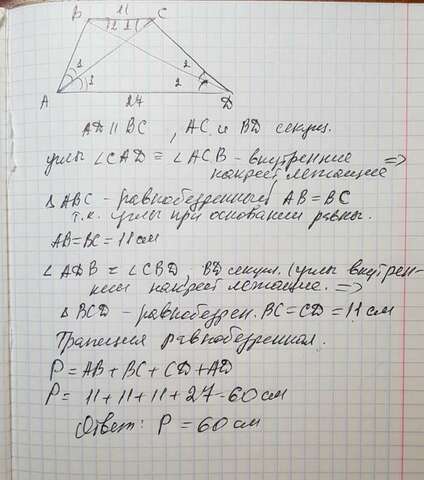 11
B C
2 1
1 1 2 2
A 27 D
AD || BC , AC и BD секущ.
углы ∠CAD = ∠ACB - внутренние =>
накрест лежащие
Δ ABC - равнобедренный AB = BC
т.к. углы при основании равны.
AB=BC = 11 см
∠ADB = ∠CBD, BD секущ. (углы внутрен-
ние накрест лежащие. =>
Δ BCD - равнобедрен. BC = CD = 11 см
Трапеция равнобедренная.
P = AB + BC + CD + AD
P = 11 + 11 + 11 + 27 = 60 см
Ответ: P = 60 см